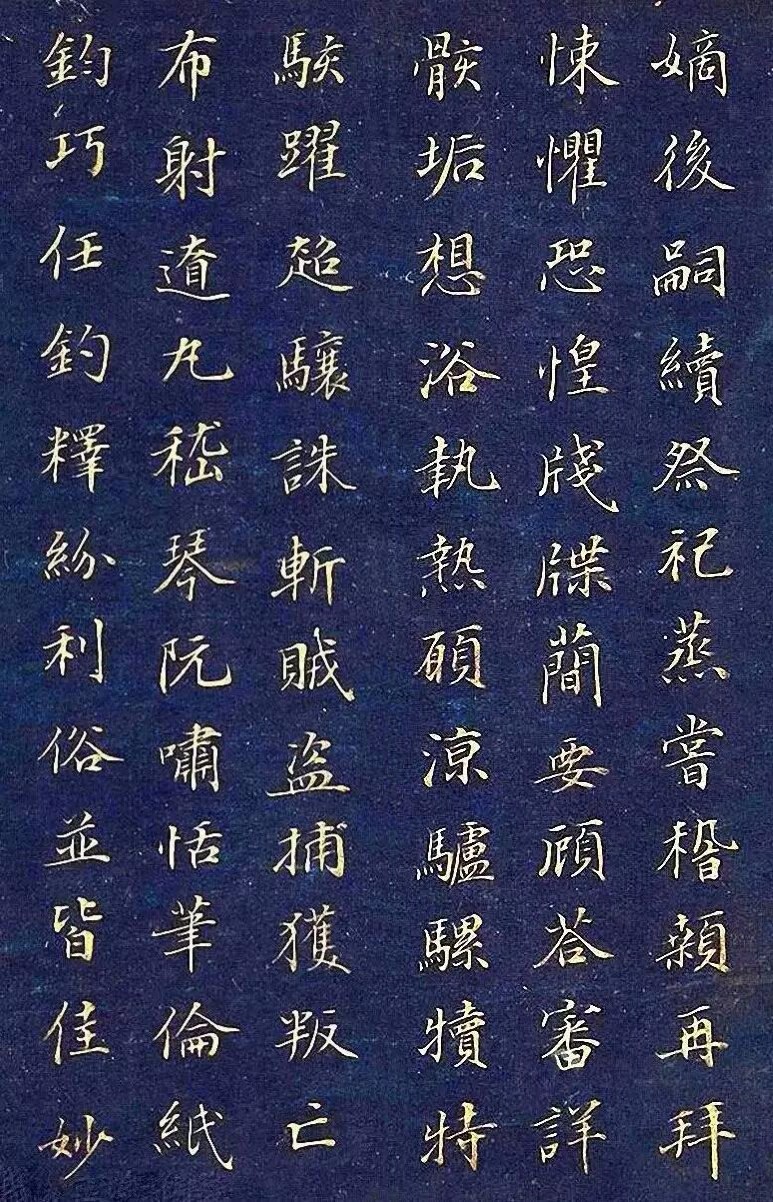 嫡後嗣續祭祀蒸嘗稽顙再拜
悚懼恐惶牋牒蕳要顧荅審詳
骸垢想浴執熱願涼驢騾犢特
駭躍超驤誅斬賊盜捕獲叛亡
布射遼丸嵇琴阮嘯恬筆倫紙
鈞巧任釣釋紛利俗並皆佳妙